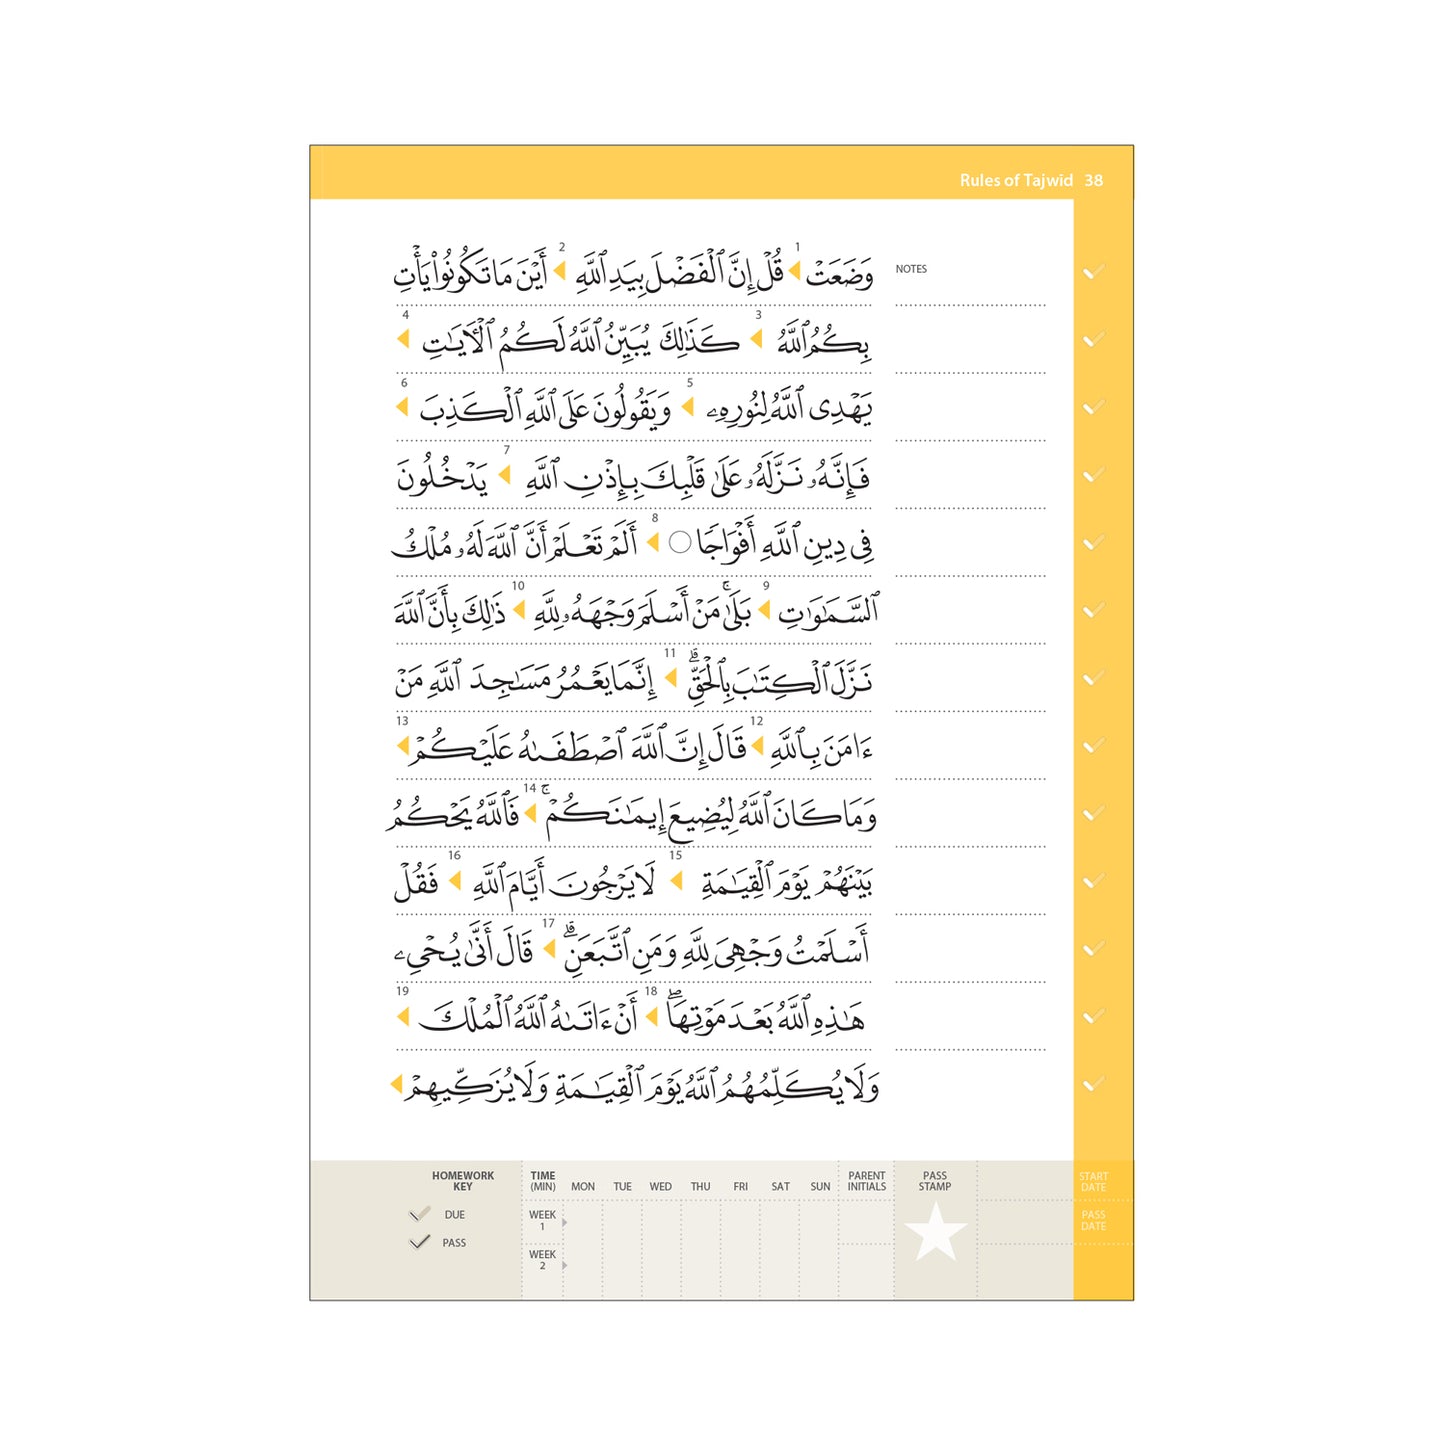 Rules of Tajwid 38
1 2
وَضَعَتۡ قُلۡ إِنَّ ٱلۡفَضۡلَ بِيَدِ ٱللَّهِ أَيۡنَ مَا تَكُونُواْ يَأۡتِ
NOTES
3 4
بِكُمُ ٱللَّهُ كَذَٰلِكَ يُبَيِّنُ ٱللَّهُ لَكُمُ ٱلۡأٓيَٰتِ
5 6
يَهۡدِى ٱللَّهُ لِنُورِهِۦ وَيَقُولُونَ عَلَى ٱللَّهِ ٱلۡكَذِبَ
7
فَإِنَّهُۥ نَزَّلَهُۥ عَلَىٰ قَلۡبِكَ بِإِذۡنِ ٱللَّهِ يَدۡخُلُونَ
8
فِى دِينِ ٱللَّهِ أَفۡوَاجٗا ○ أَلَمۡ تَعۡلَمۡ أَنَّ ٱللَّهَ لَهُۥ مُلۡكُ
9 10
ٱلسَّمَٰوَٰتِ بَلَىٰۚ مَنۡ أَسۡلَمَ وَجۡهَهُۥ لِلَّهِ ذَٰلِكَ بِأَنَّ ٱللَّهَ
11
نَزَّلَ ٱلۡكِتَٰبَ بِٱلۡحَقِّۗ إِنَّمَا يَعۡمُرُ مَسَٰجِدَ ٱللَّهِ مَنۡ
12 13
ءَامَنَ بِٱللَّهِ قَالَ إِنَّ ٱللَّهَ ٱصۡطَفَىٰهُ عَلَيۡكُمۡ
14
وَمَا كَانَ ٱللَّهُ لِيُضِيعَ إِيمَٰنَكُمۡۚ فَٱللَّهُ يَحۡكُمُ
15 16
بَيۡنَهُمۡ يَوۡمَ ٱلۡقِيَٰمَةِ لَا يَرۡجُونَ أَيَّامَ ٱللَّهِ فَقُلۡ
17
أَسۡلَمۡتُ وَجۡهِىَ لِلَّهِ وَمَنِ ٱتَّبَعَنِۗ قَالَ أَنَّىٰ يُحۡيِۦ
18 19
هَٰذِهِ ٱللَّهُ بَعۡدَ مَوۡتِهَاۖ أَنۡ ءَاتَىٰهُ ٱللَّهُ ٱلۡمُلۡكَ
وَلَا يُكَلِّمُهُمُ ٱللَّهُ يَوۡمَ ٱلۡقِيَٰمَةِ وَلَا يُزَكِّيهِمۡ
HOMEWORK
KEY
DUE
PASS
TIME
(MIN) MON TUE WED THU FRI SAT SUN
PARENT
INITIALS
PASS
STAMP
START
DATE
WEEK
1
PASS
DATE
WEEK
2